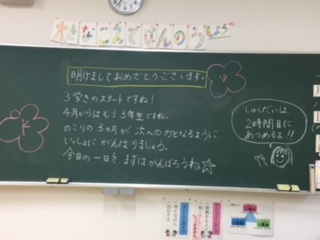 明けましておめでとうございます。
3学きのスタートですね！
4月からはもう3年生ですね。
のこりの3カ月が次への力となるように
いっしょに がんばりましょう。
今日の一日を まずはがんばろうね☆
しゅくだいは、
2時間目に
あつめるよ!!